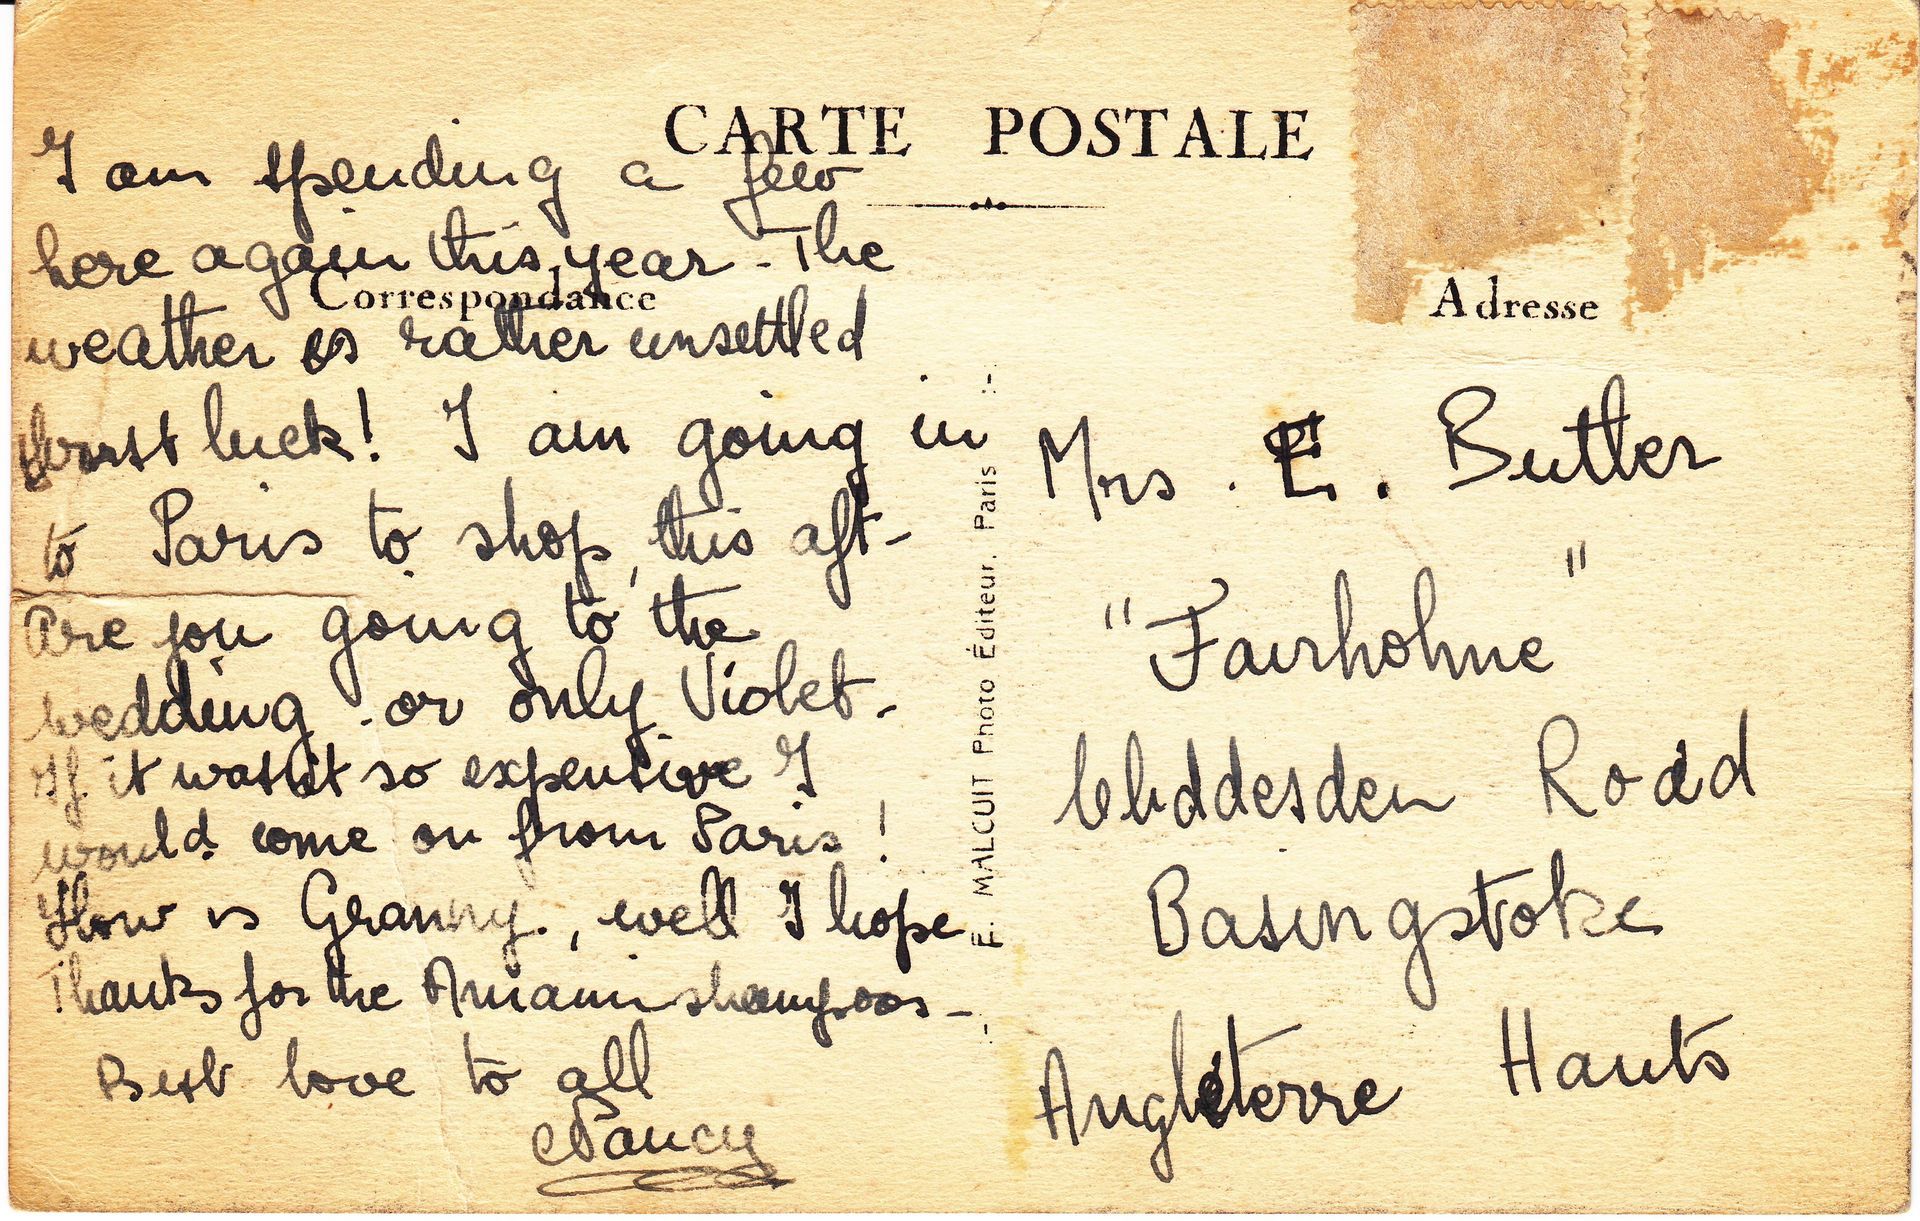 CARTE POSTALE
Correspondance
Adresse
I am spending a few
here again this year - The
weather is rather unsettled
worst luck! I am going in
to Paris to shop, this aft-
Are you going to the
wedding - or only Violet -
If it wasn't so expensive I
would come on from Paris!
How is Granny, well I hope
Thanks for the Amami shampoos -
Best love to all
Nancy
F. MALCUIT Photo Éditeur. Paris
Mrs. E. Butler
"Fairholme"
Cliddesden Road
Basingstoke
Angleterre Hants